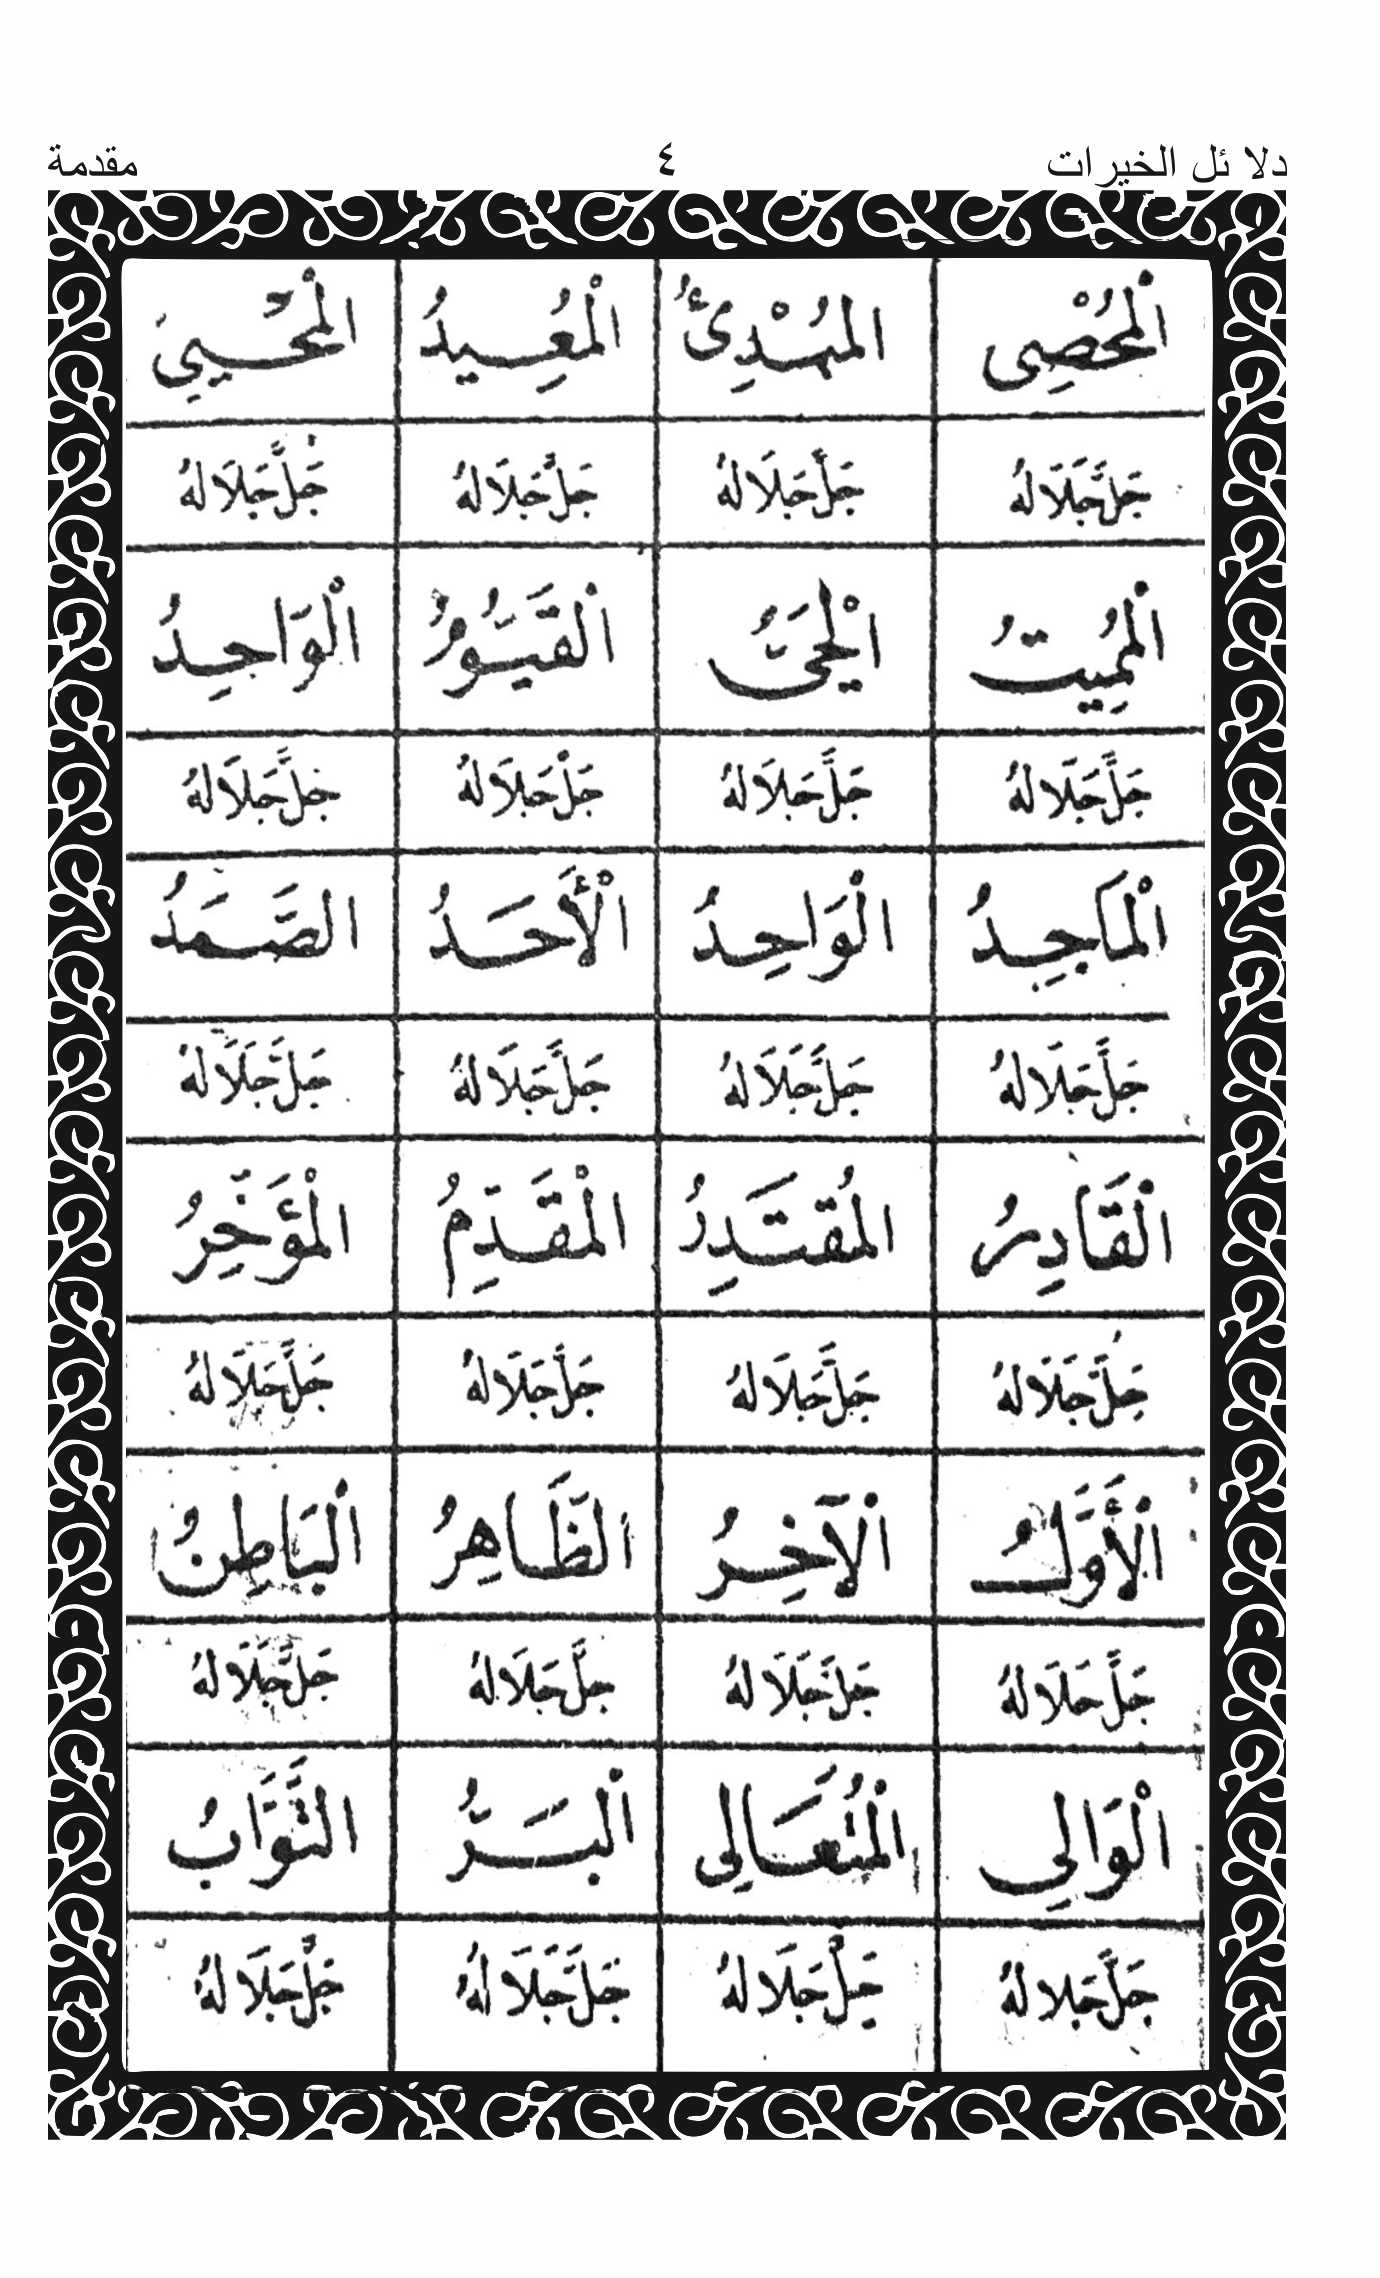 دلا ئل الخيرات ٤ مقدمة
اَلْمُحْصِى اَلْمُبْدِئُ اَلْمُعِيدُ اَلْمُحْيِى
جَلَّ جَلَالُهُ جَلَّ جَلَالُهُ جَلَّ جَلَالُهُ جَلَّ جَلَالُهُ
اَلْمُمِيتُ اَلْحَىُّ اَلْقَيُّومُ اَلْوَاجِدُ
جَلَّ جَلَالُهُ جَلَّ جَلَالُهُ جَلَّ جَلَالُهُ جَلَّ جَلَالُهُ
اَلْمَاجِدُ اَلْوَاحِدُ اَلْأَحَدُ الصَّمَدُ
جَلَّ جَلَالُهُ جَلَّ جَلَالُهُ جَلَّ جَلَالُهُ جَلَّ جَلَالُهُ
اَلْقَادِرُ اَلْمُقْتَدِرُ اَلْمُقَدِّمُ اَلْمُؤَخِّرُ
جَلَّ جَلَالُهُ جَلَّ جَلَالُهُ جَلَّ جَلَالُهُ جَلَّ جَلَالُهُ
اَلْأَوَّلُ اَلْآخِرُ الظَّاهِرُ اَلْبَاطِنُ
جَلَّ جَلَالُهُ جَلَّ جَلَالُهُ جَلَّ جَلَالُهُ جَلَّ جَلَالُهُ
اَلْوَالِى اَلْمُتَعَالِى اَلْبَرُّ التَّوَّابُ
جَلَّ جَلَالُهُ جَلَّ جَلَالُهُ جَلَّ جَلَالُهُ جَلَّ جَلَالُهُ